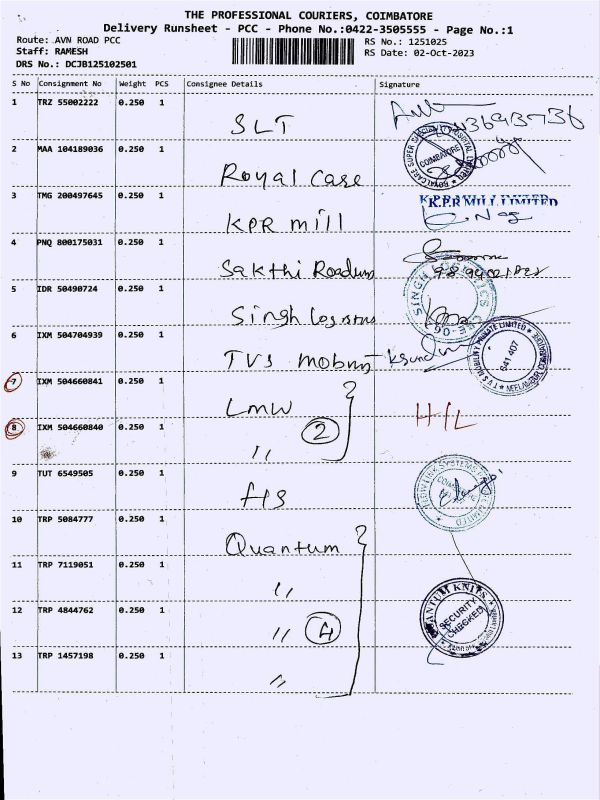 THE PROFESSIONAL COURIERS, COIMBATORE
Delivery Runsheet - PCC - Phone No.:0422-3505555 - Page No.:1
Route: AVN ROAD PCC
RS No.: 1251025
Staff: RAMESH
RS Date: 02-Oct-2023
DRS No.: DCJB125102501
S No Consignment No Weight PCS Consignee Details Signature
1 TRZ 55002222 0.250 1 SLT
2 MAA 104189036 0.250 1 Royal Care
ROYAL CARE SUPER COIMBATORE
3 TMG 200497645 0.250 1 KPR mill K.P.R MILL LIMITED
4 PNQ 800175031 0.250 1 Sakthi
5 IDR 50490724 0.250 1 Singh SINGH LOGISTICS
6 IXM 504704939 0.250 1 TVS
MOBILITY PRIVATE LIMITED 641 407
7 IXM 504660841 0.250 1 LMW
8 IXM 504660840 0.250 1 〃 2 H/L
9 TUT 6549505 0.250 1 HS
10 TRP 5084777 0.250 1 Quantum
11 TRP 7119051 0.250 1 〃
12 TRP 4844762 0.250 1 〃 4
QUANTUM KNITS SECURITY CHECKED
13 TRP 1457198 0.250 1 〃